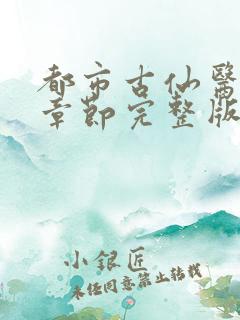 都市古仙醫
章節完整版
小銀匠
未经同意禁止转载